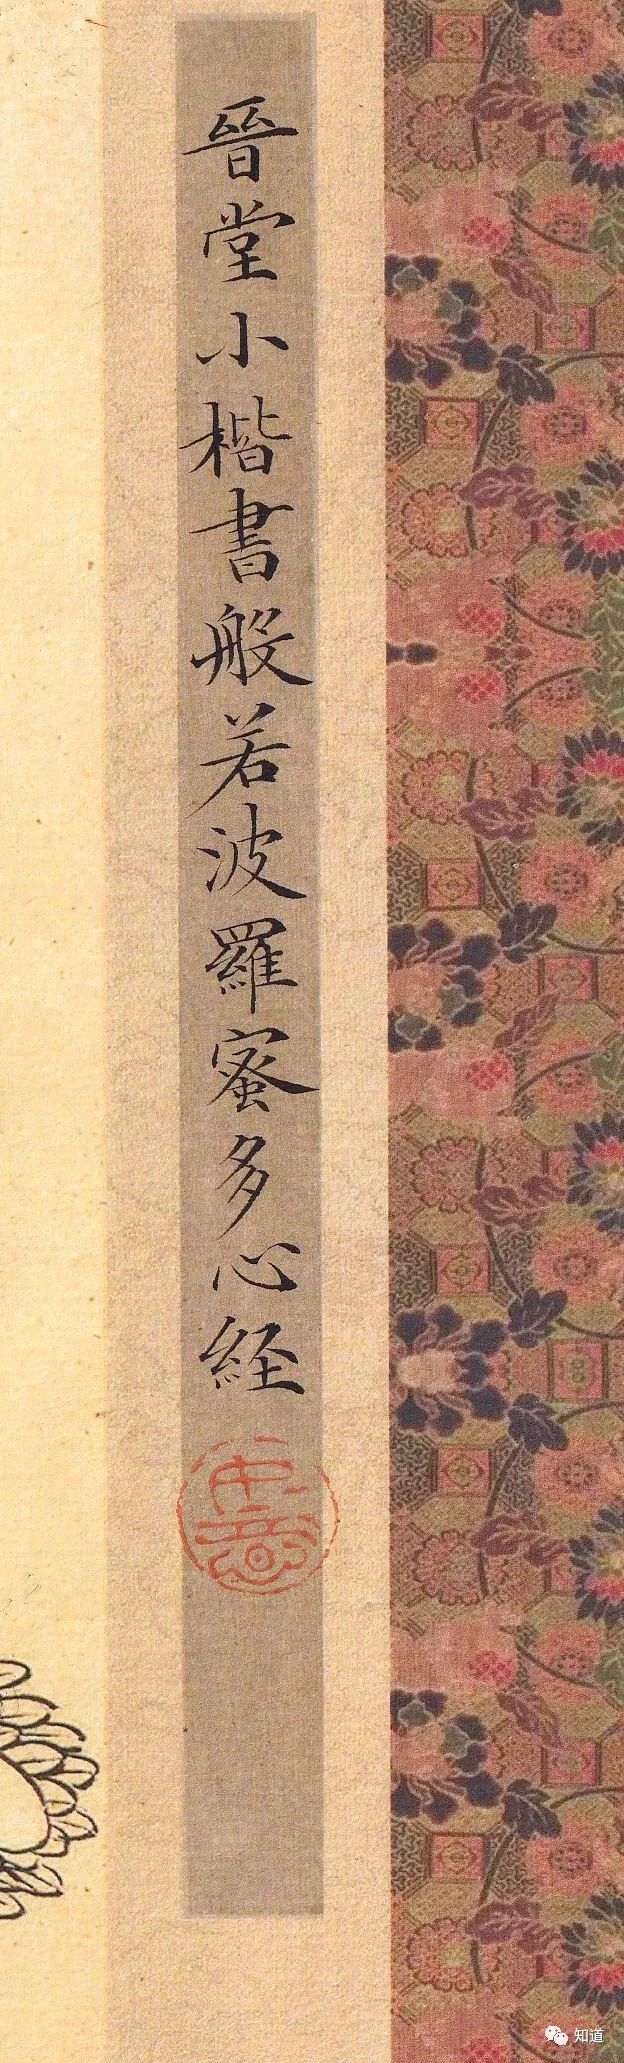 晉堂小楷書般若波羅蜜多心経
知道